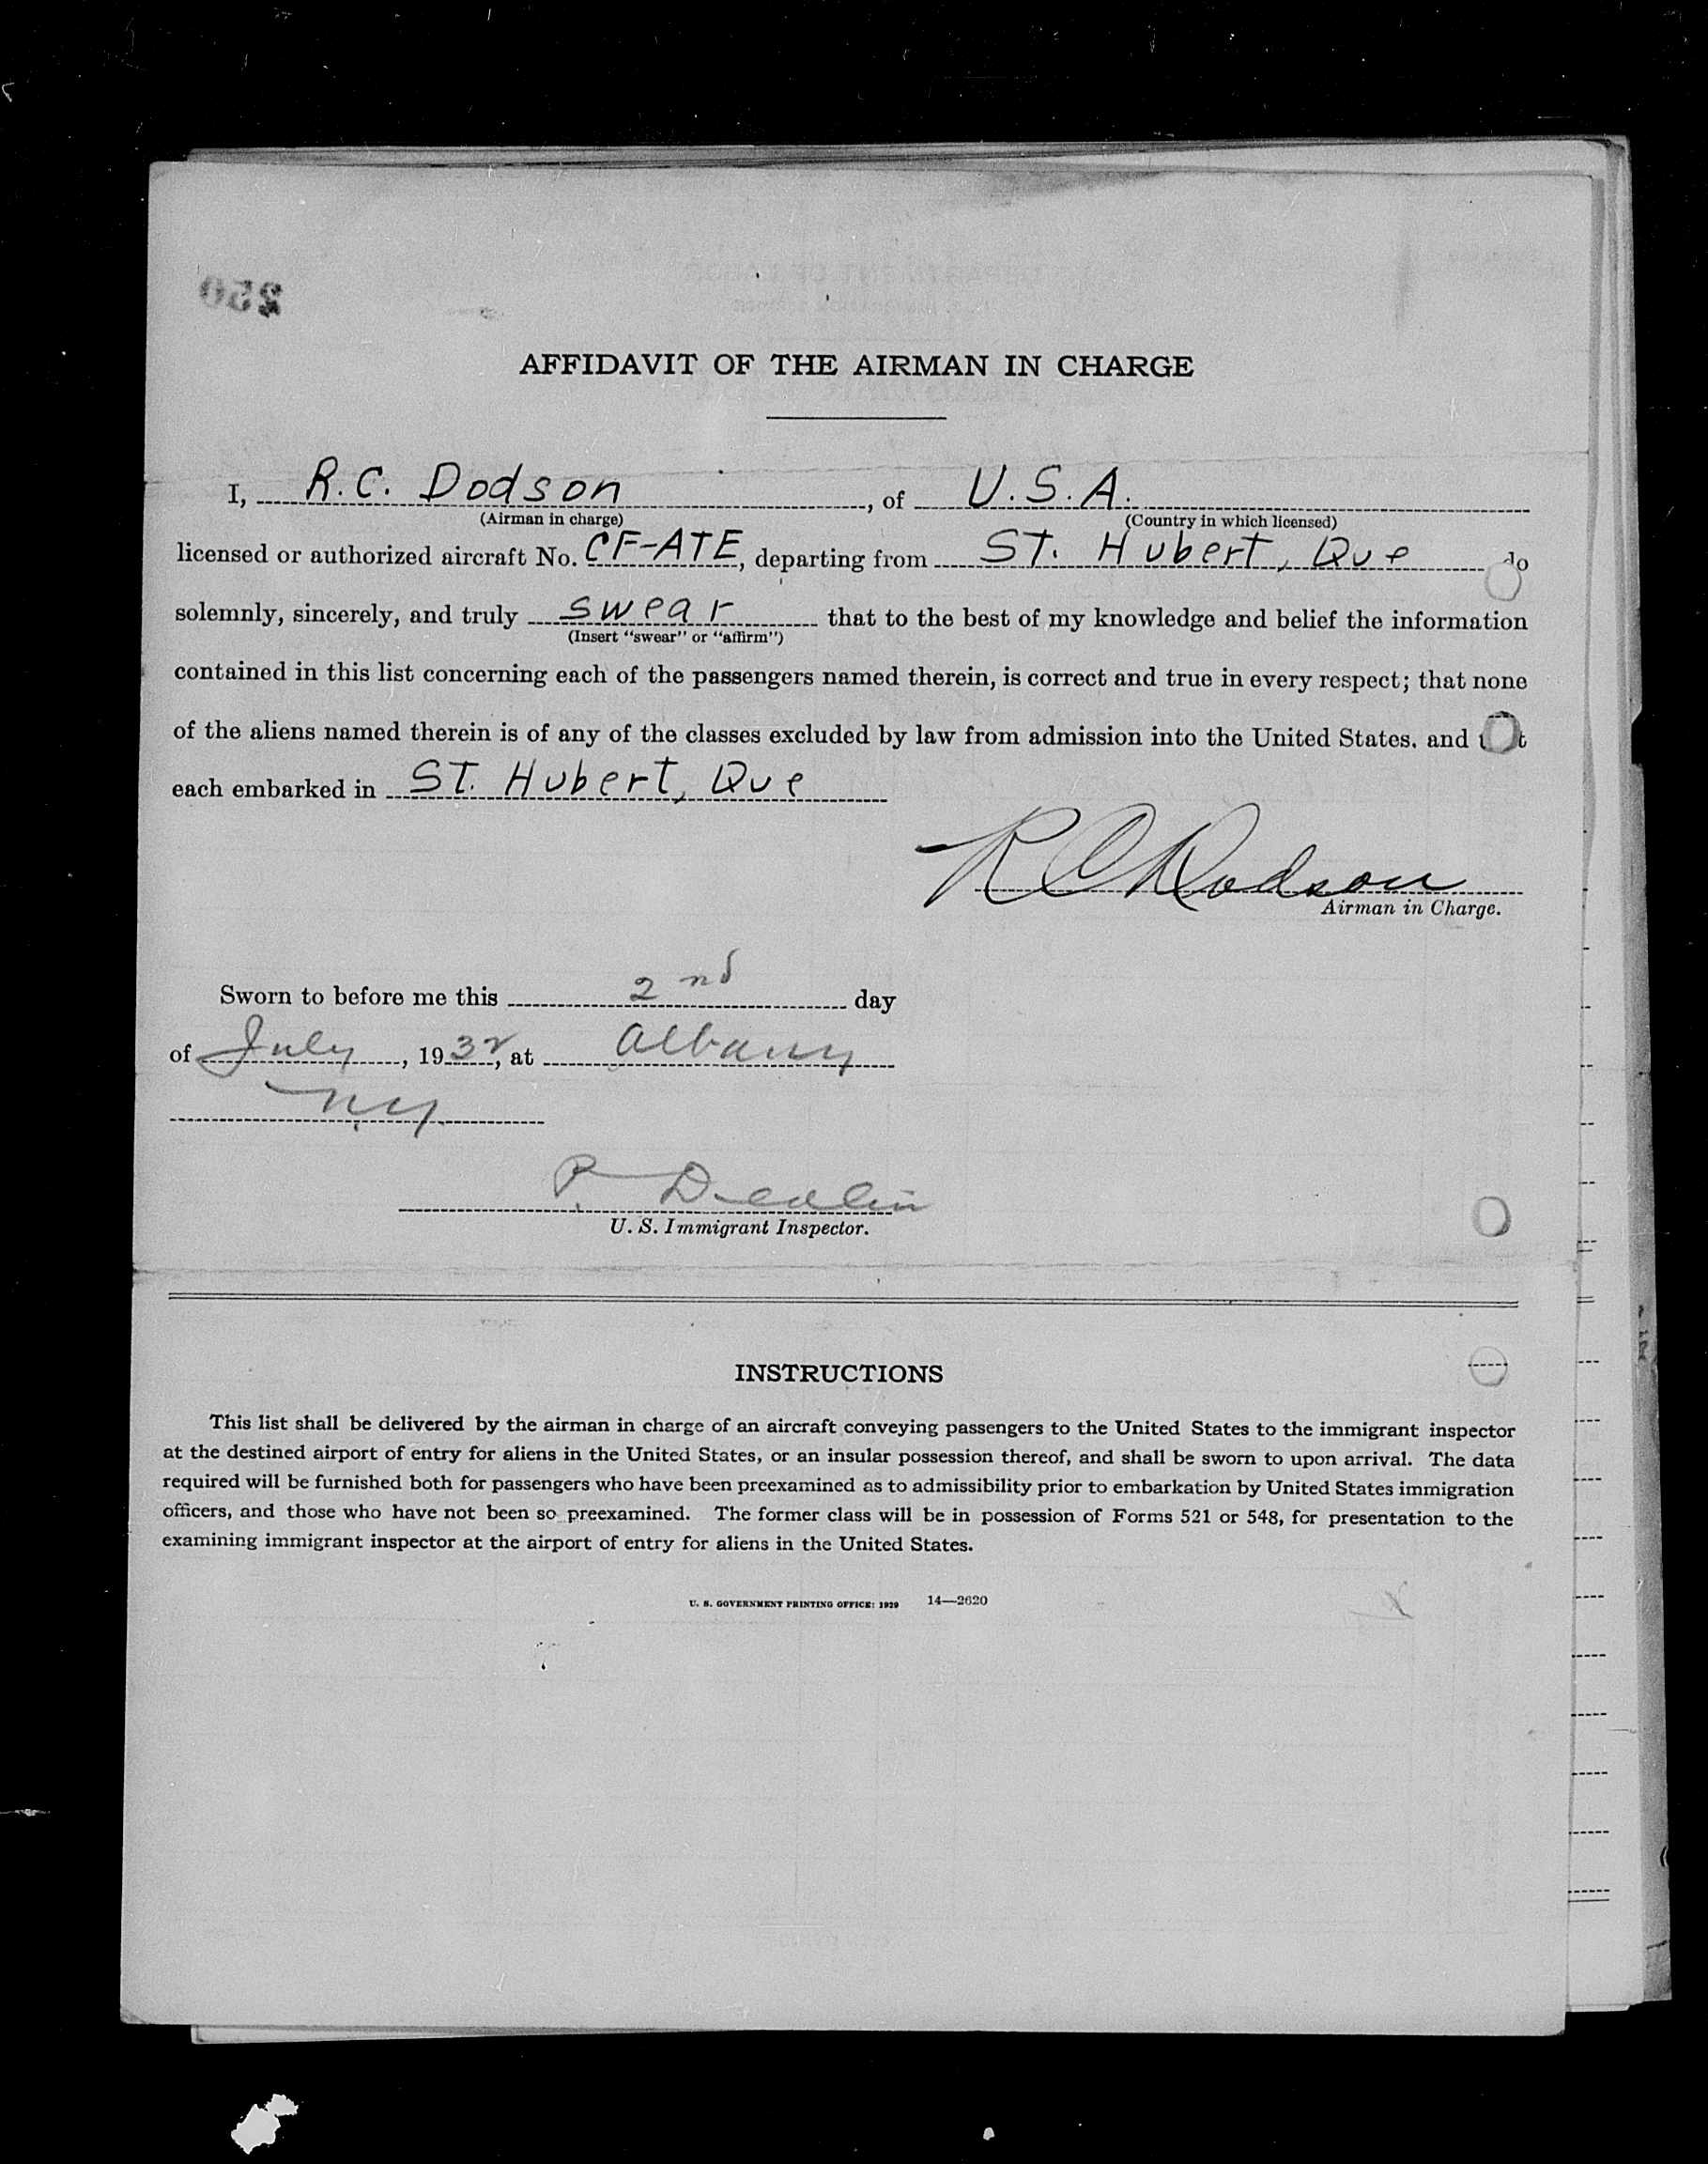 250
AFFIDAVIT OF THE AIRMAN IN CHARGE
I, R.C. Dodson, of U.S.A.
(Airman in charge) (Country in which licensed)
licensed or authorized aircraft No. CF-ATE, departing from ST. Hubert, Que do
solemnly, sincerely, and truly swear that to the best of my knowledge and belief the information
(Insert "swear" or "affirm")
contained in this list concerning each of the passengers named therein, is correct and true in every respect; that none
of the aliens named therein is of any of the classes excluded by law from admission into the United States, and
each embarked in ST. Hubert, Que
R C Dodson
Airman in Charge.
Sworn to before me this 2nd day
of July, 1932, at Albany
N.Y.
P.
U. S. Immigrant Inspector.
INSTRUCTIONS
This list shall be delivered by the airman in charge of an aircraft conveying passengers to the United States to the immigrant inspector
at the destined airport of entry for aliens in the United States, or an insular possession thereof, and shall be sworn to upon arrival. The data
required will be furnished both for passengers who have been preexamined as to admissibility prior to embarkation by United States immigration
officers, and those who have not been so preexamined. The former class will be in possession of Forms 521 or 548, for presentation to the
examining immigrant inspector at the airport of entry for aliens in the United States.
U. S. GOVERNMENT PRINTING OFFICE: 1929 14—2620